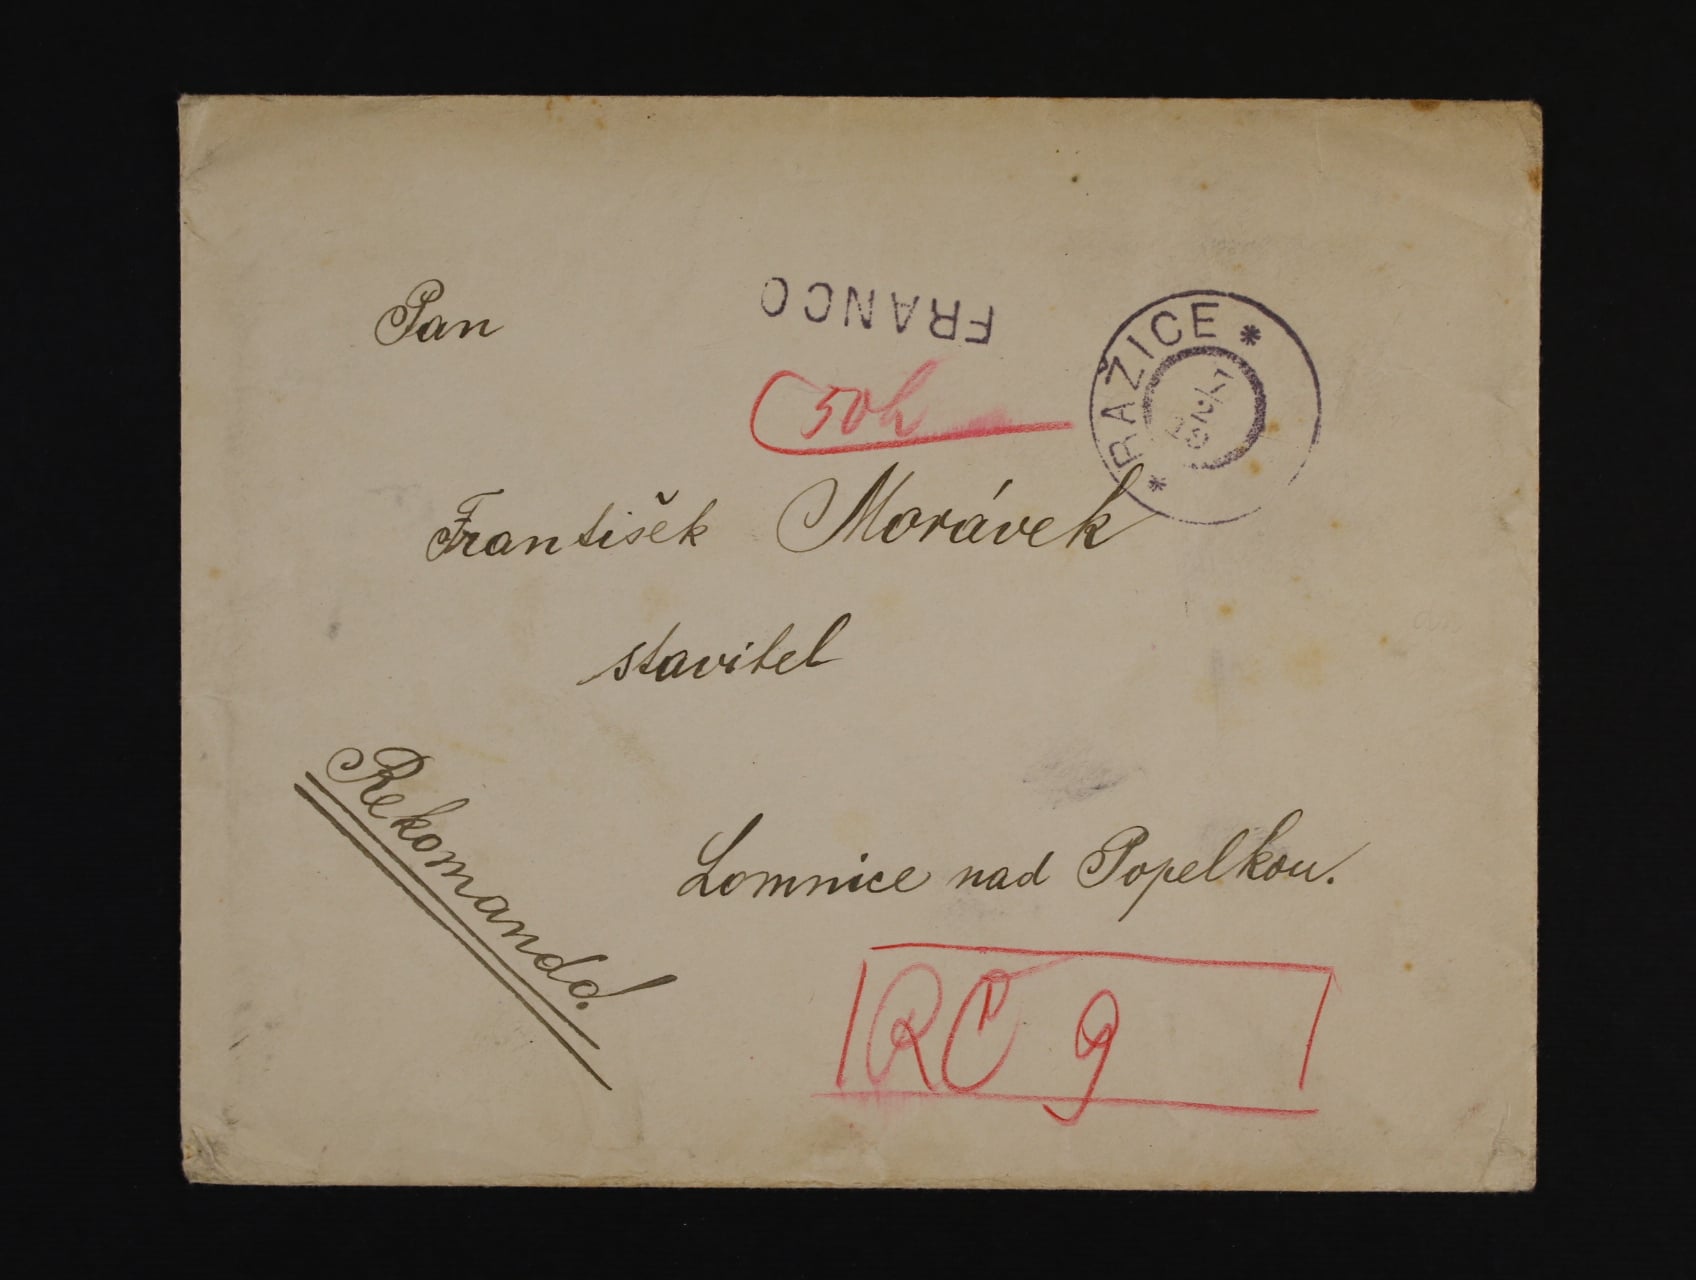 Pan
FRANCO
* RAŽICE *
50h
František Morávek
stavitel
Rekomando.
Lomnice nad Popelkou.
RČ 9